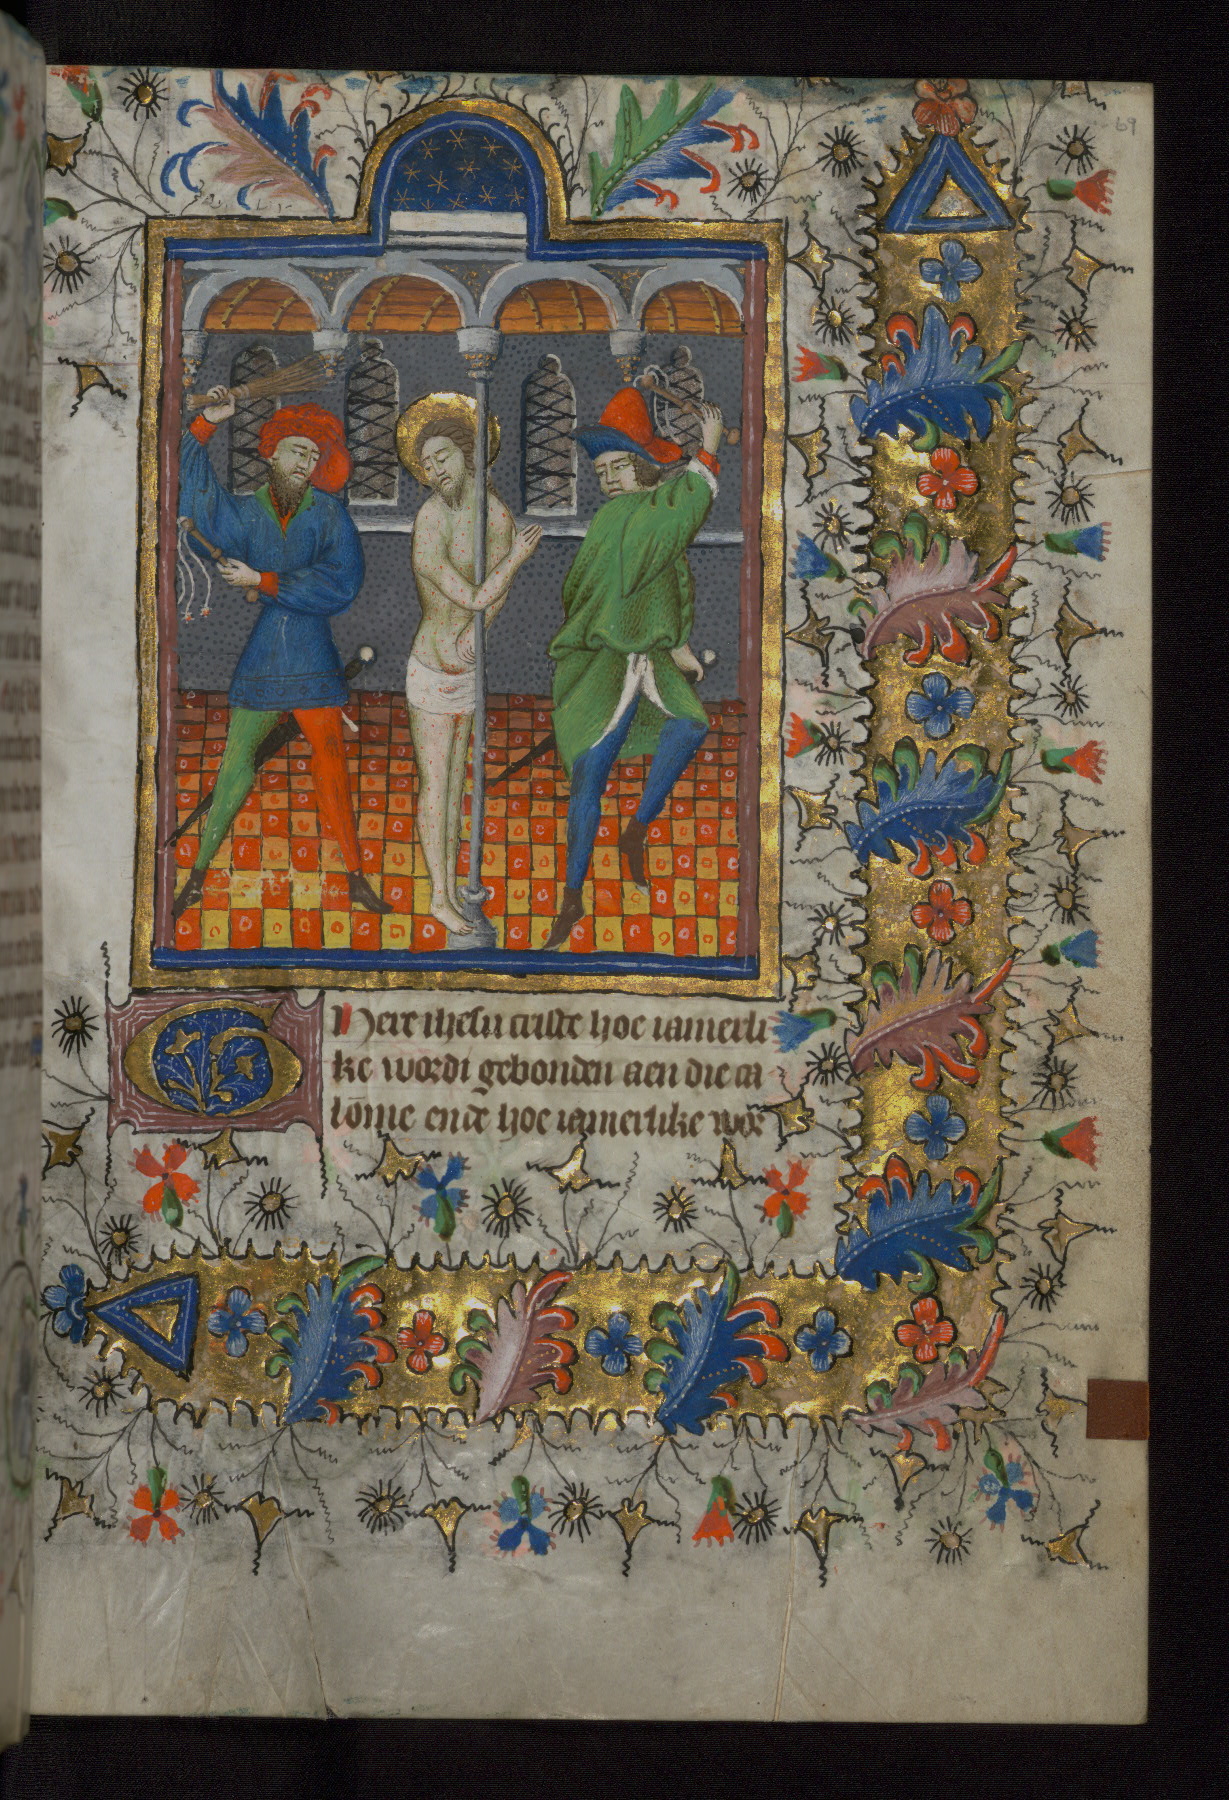 69
O Here ihesu criste hoe iamerli
ke wordi gebonden aen die ca
lōme ende hoe iamerlike wor